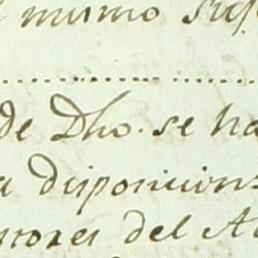 mismo
de Dho. se ha
a disposicion
rrores del A